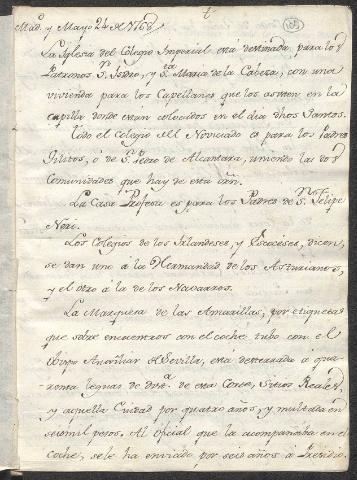 Mad. y Mayo 24 de 1768.
La Iglesia del Colegio Imperial está destinada, para los
Patronos Sn. Isidro, y Sta. Maria de la Cabeza, con una
vivienda para los Capellanes que los asisten en la
capilla donde estan colocados en el dia dhos Santos.
Todo el Colegio del Noviciado es para los Padres
Gilitos, ó de Sn. Pedro de Alcantara, uniendo las dos
Comunidades que hay de esta orn.
La Casa Profesa es para los Padres de Sn. Felipe
Neri.
Los Colegios de los Irlandeses, y Escoceses, dicen,
se dan uno á la Hermandad de los Asturianos,
y el otro á la de los Navarros.
La Marquesa de las Amarillas, por etiquetas
que sobre encuentros con el coche tubo con el
Obispo Auxiliar de Sevilla, está desterrada á qua-
renta leguas de dista. de esta Corte, Sitios Reales,
y aquella Ciudad por quatro años, y multada en
seis mil pesos. Al oficial que la acompañaba en el
coche, se le ha enviado por seis años a Presidio.